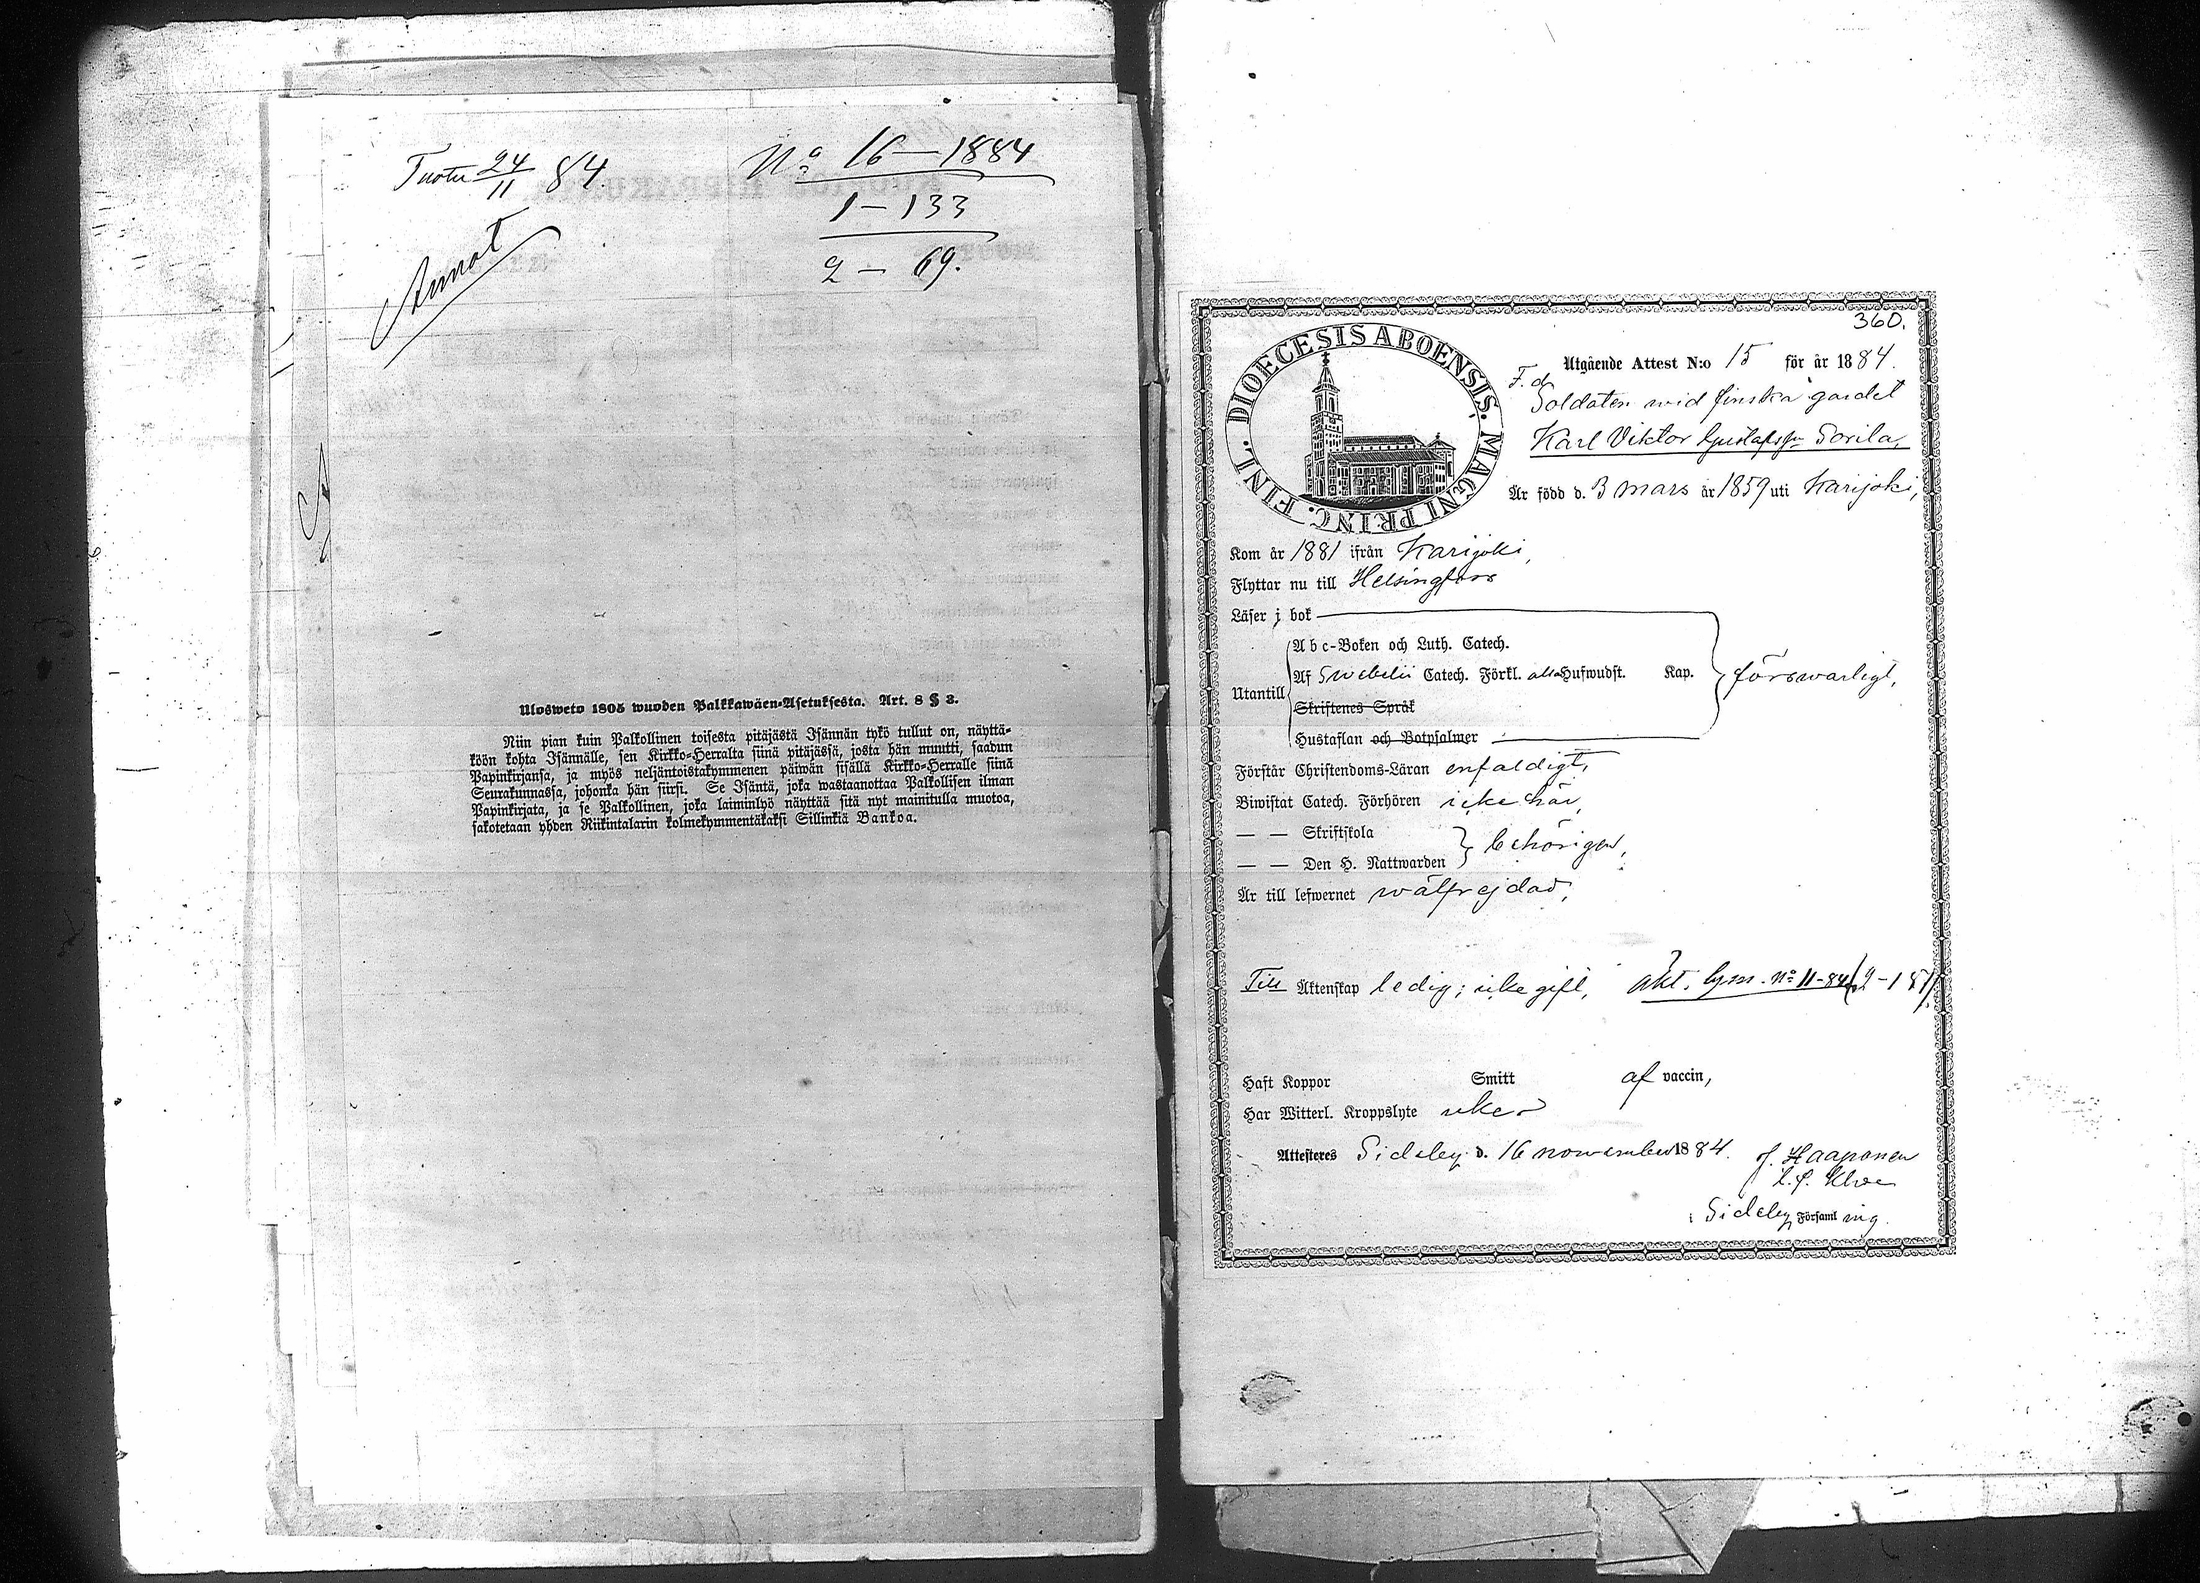 Tuotu 24/11 84.
No 16—1884
1—133
2—69.
Annot
Ulosweto 1805 wuoden Palkkawäen-Asetuksesta. Art. 8 § 3.
Niin pian kuin Palkollinen toisesta pitäjästä Isännän tykö tullut on, näyttä-
köön kohta Isännälle, sen Kirkko-Herralta siinä pitäjässä, josta hän muutti, saadun
Papinkirjansa, ja myös neljäntoistakymmenen päiwän sisällä Kirkko-Herralle siinä
Seurakunnassa, johonka hän siirsi. Se Isäntä, joka wastaanottaa Palkollisen ilman
Papinkirjata, ja se Palkollinen, joka laiminlyö näyttää sitä nyt mainitulla muotoa,
sakotetaan yhden Riikintalarin kolmekymmentäkaksi Sillinkiä Bankoa.
360.
DIOECESIS ABOENSIS. MAGNI PRINC. FINL.
Utgående Attest N:o 15 för år 1884.
F. d.
Soldaten wid finska gardet
Karl Viktor Gustafsson Sorila,
Är född d. 3 mars år 1859 uti Karijoki,
Kom år 1881 ifrån Karijoki,
Flyttar nu till Helsingfors
Läser i bok
Abc-Boken och Luth. Catech.
Utantill Af Swebelii Catech. Förkl. alla Hufwudst. Kap. förswarligt,
Skriftenes Språk
Hustaflan och Botpsalmer
Förstår Christendoms-Läran enfaldigt,
Biwistat Catech. Förhören icke här,
— — Skriftskola
— — Den H. Nattwarden behörigen,
Är till lefwernet wälfrejdad,
Till Äktenskap ledig; icke gift, akt. lysn. No 11-84 (2-181)
Haft Koppor Smitt af vaccin,
Har Witterl. Kroppslyte icke
Attesteres Sideby d. 16 november 1884. J. Haaponen
Sideby Församling.